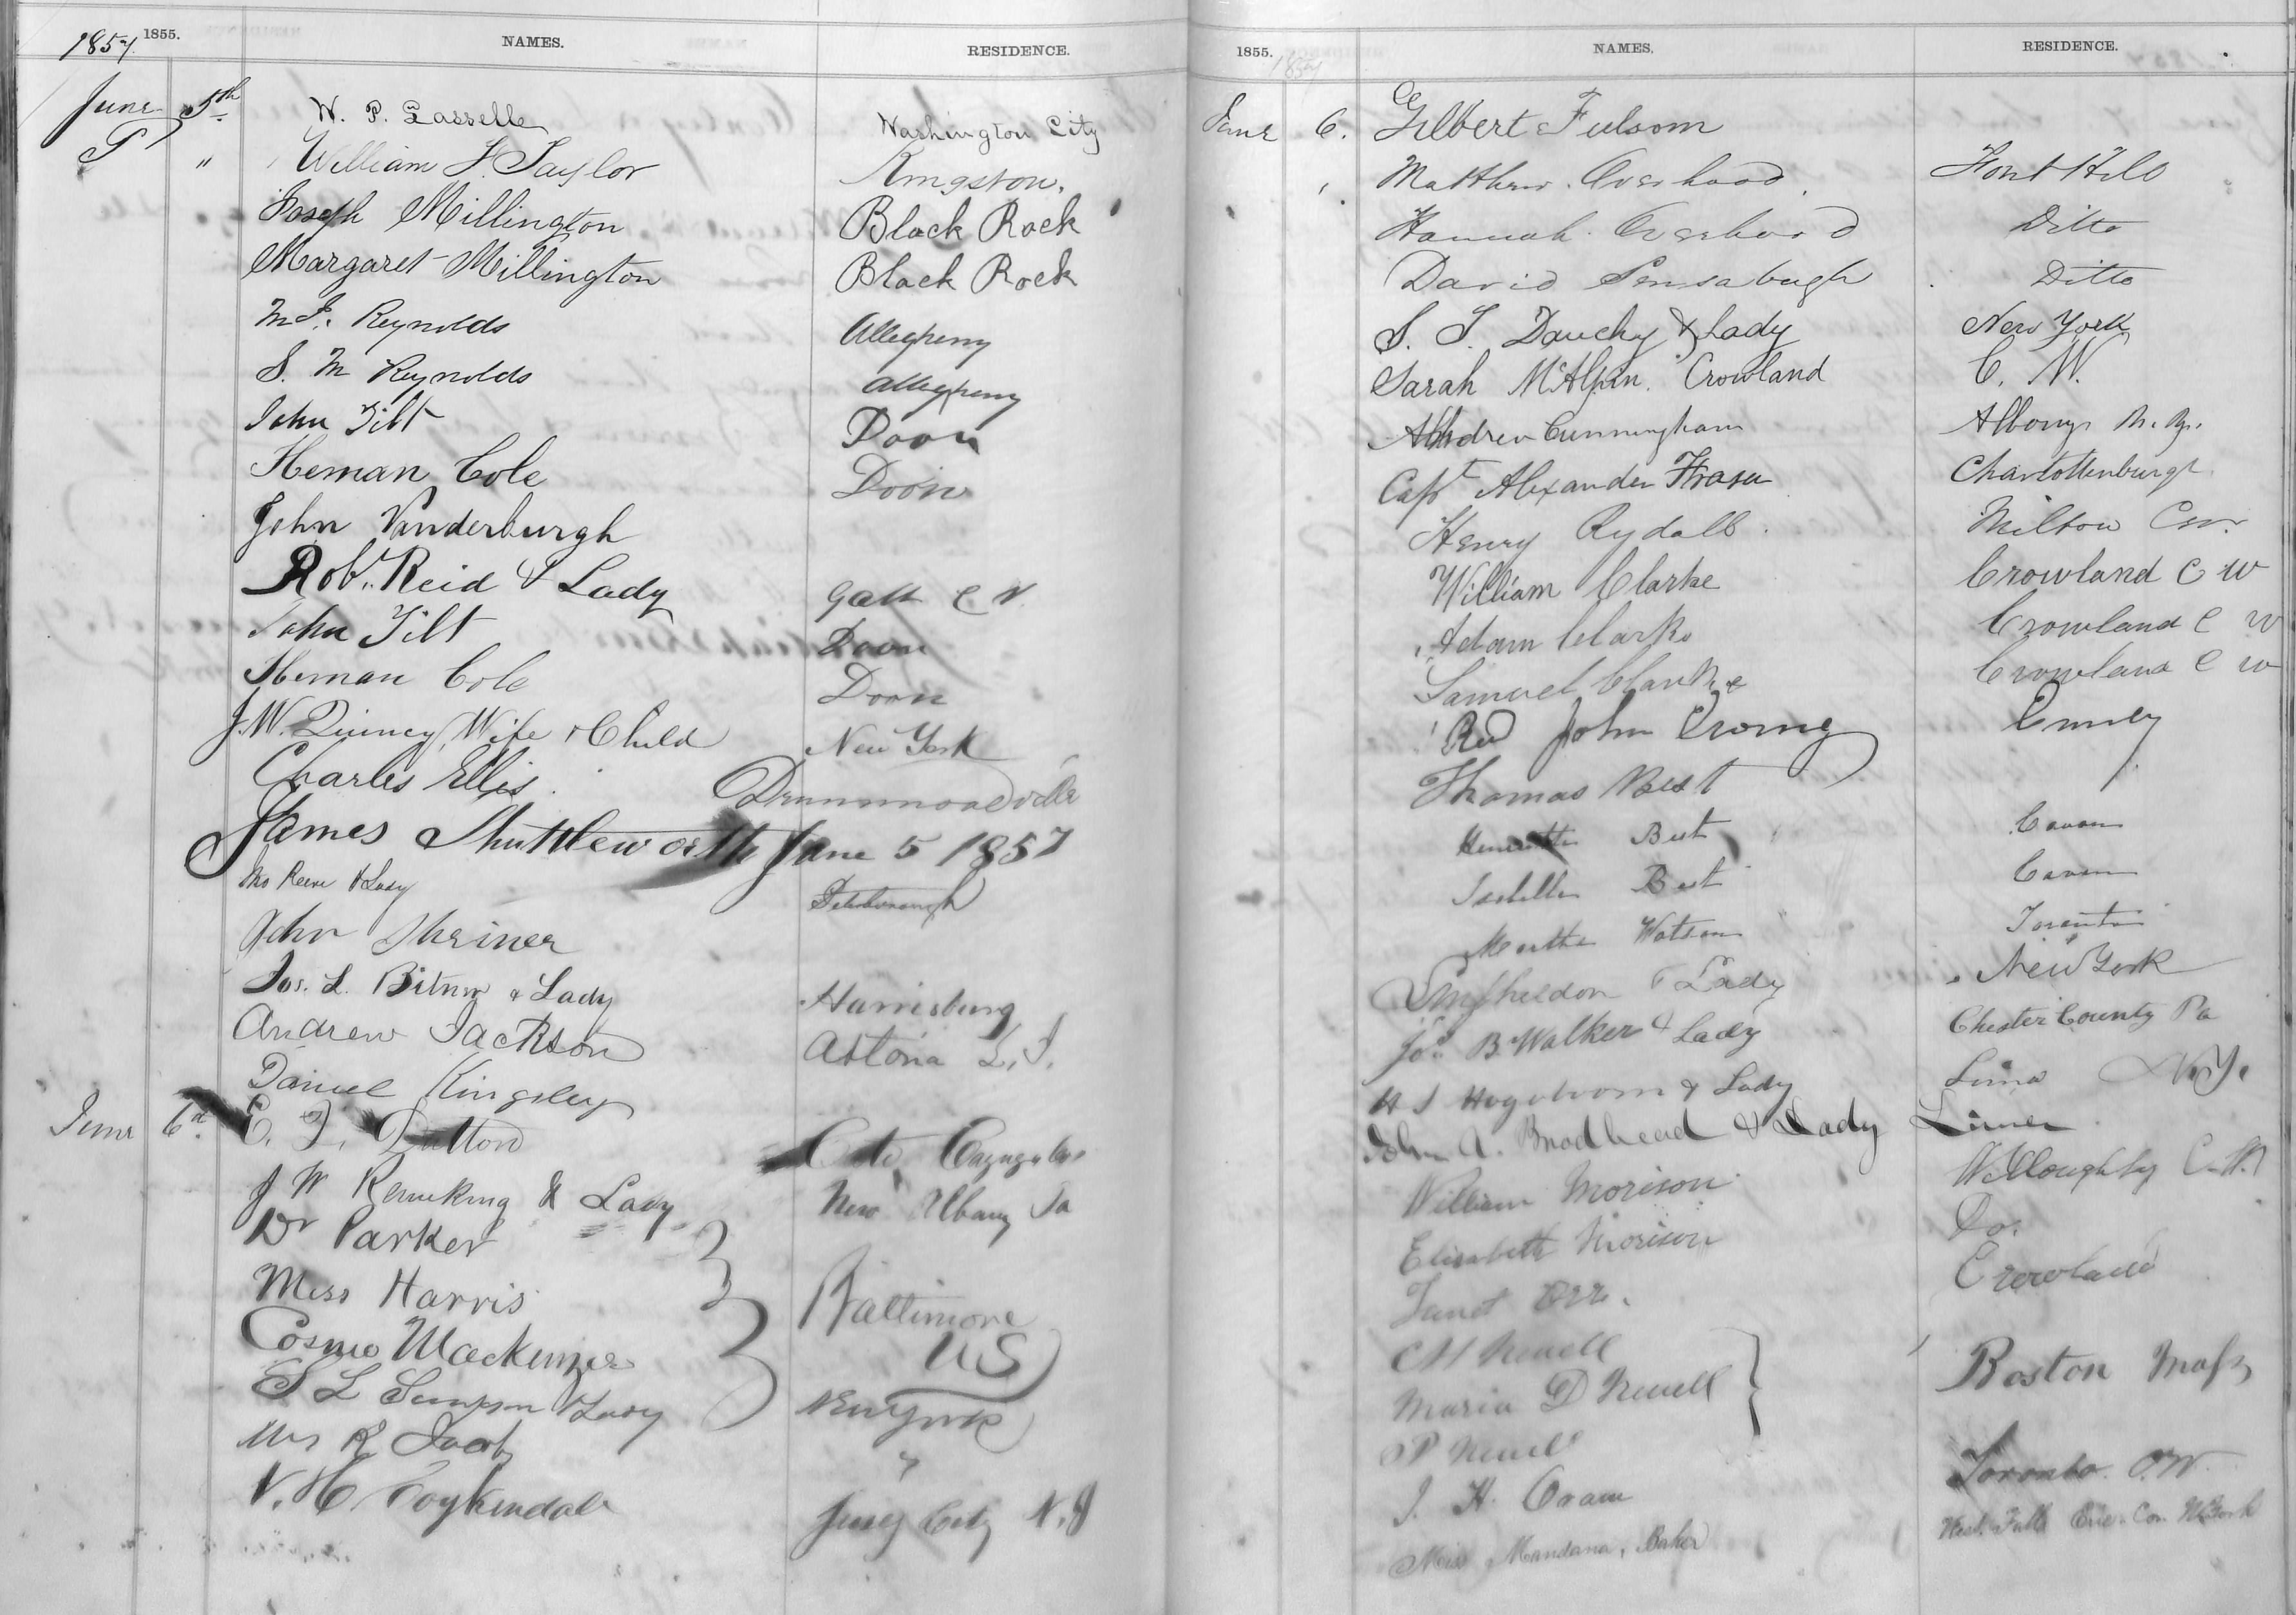 1857 1855. NAMES. RESIDENCE.
June 5th W. P. Lasselle Washington City
" William J. Taylor Kingston.
Joseph Millington Black Rock
Margaret Millington Black Rock
Reynolds Allegheny
S. M Reynolds Allegheny
John Tilt Doon
Heman Cole Doon
John Vanderburgh
Robt. Reid & Lady Galt C W
John Tilt Doon
Heman Cole Doon
J. W. Quincy, Wife & Child New York
Charles Ellis. Drummondville
James Shuttleworth June 5 1857
Reeve & Lady Peterborough
John Shriner
Jos. L. Bitner & Lady Harrisburg
Andrew Jackson Astoria L. I.
Daniel Kingsley
June 6th E. Dutton Cato Cayuga Co
J W & Lady New Albany Ia
Dr Parker
Miss Harris Baltimore
Cosmo Mackenzie U S
S L Simpson & Lady New York
Mrs R Jacobs "
N. H. Coykendall Jersey City N. J
1855. 1857 NAMES. RESIDENCE.
June 6. Gilbert Fulsom
Matthew Overhood Font Hill
Hannah Overhood Ditto
David Sensabaugh Ditto
S. T. Dauchy & Lady New York
Sarah McAlpin. Crowland C. W.
Andrew Cunningham Albany N. Y.
Capt Alexander Fraser Charlottenburgh
Henry Rydall. Milton
William Clarke Crowland C W
Adam Clarke Crowland C W
Samuel Clarke Crowland C W
Rev John Irving Emily
Thomas Best
Best Cavan
Isabella Best Cavan
Martha Watson Toronto
Sheldon & Lady New York
Jos. B. Walker & Lady Chester County Pa
& Lady Lima N. Y.
John A. Brodhead & Lady Lima
William Morison Willoughby C. W.
Elizabeth Morison Do.
Janet Orr. Crowland
C H Newell
Maria D Newell Boston Mass
P Newell
J. H. Oram Toronto. C. W.
Miss Mandana, Baker West. Falls Erie. Co. N York